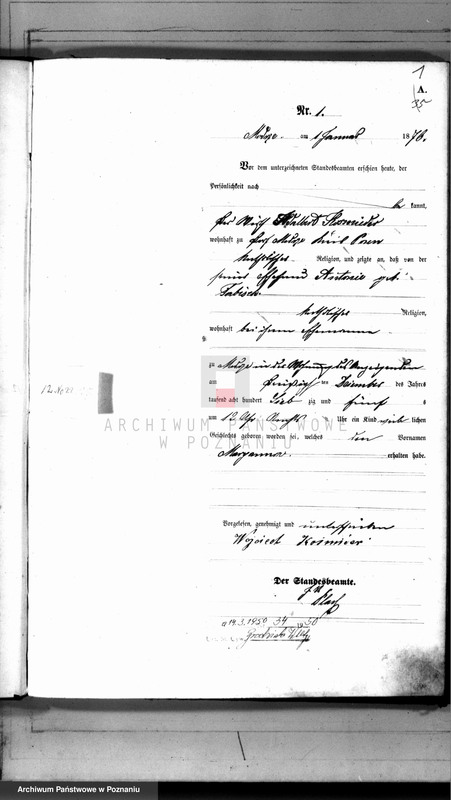 1
A.
35
Nr. 1.
am 1 Januar 1876.
Vor dem unterzeichneten Standesbeamten erschien heute, der
Persönlichkeit nach
be kannt,
der Wirth
wohnhaft zu
katholischer Religion, und zeigte an, daß von der
seiner Ehefrau Antonie geb.
katholischer Religion,
wohnhaft bei ihrem Ehemanne
zu in der Wohnung des Anzeigenden
am dreißigsten Dezember des Jahres
tausend acht hundert sieb zig und fünf s
um 12 Uhr Nachts Uhr ein Kind weib lichen
Geschlechts geboren worden sei, welches den Vornamen
Maryanna erhalten habe.
12. No 29
ARCHIWUM PAŃSTWOWE
W POZNANIU
Vorgelesen, genehmigt und unterschrieben
Der Standesbeamte.
19.3.1950 34 50
Archiwum Państwowe w Poznaniu